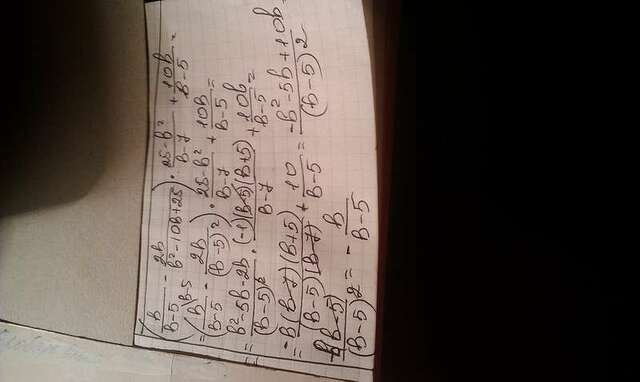 (b/(b-5) - 2b/(b²-10b+25)) · (25-b²)/(b-7) + 10b/(b-5) =
= (b\b-5/(b-5) - 2b/(b-5)²) · (25-b²)/(b-7) + 10b/(b-5) =
= (b²-5b-2b)/(b-5)² · (-1)(b-5)(b+5)/(b-7) + 10b/(b-5) =
= -b(b-7)(b+5)/(b-5)(b-7) + 10/(b-5) = (-b²-5b+10b)/(b-5)² =
-b(b-5)/(b-5)² = -b/(b-5)